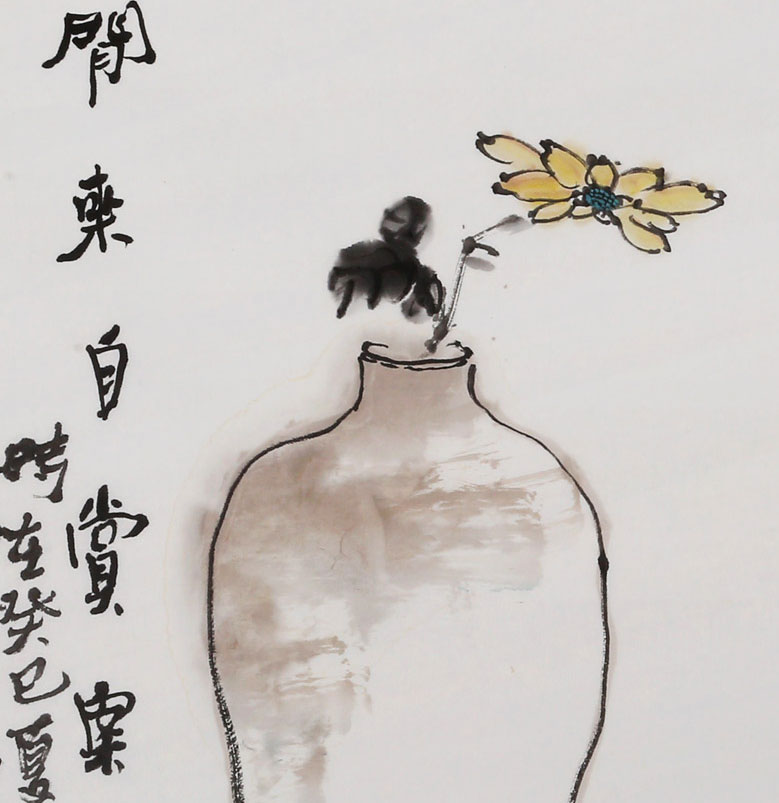 閒來自賞案
時在癸巳夏